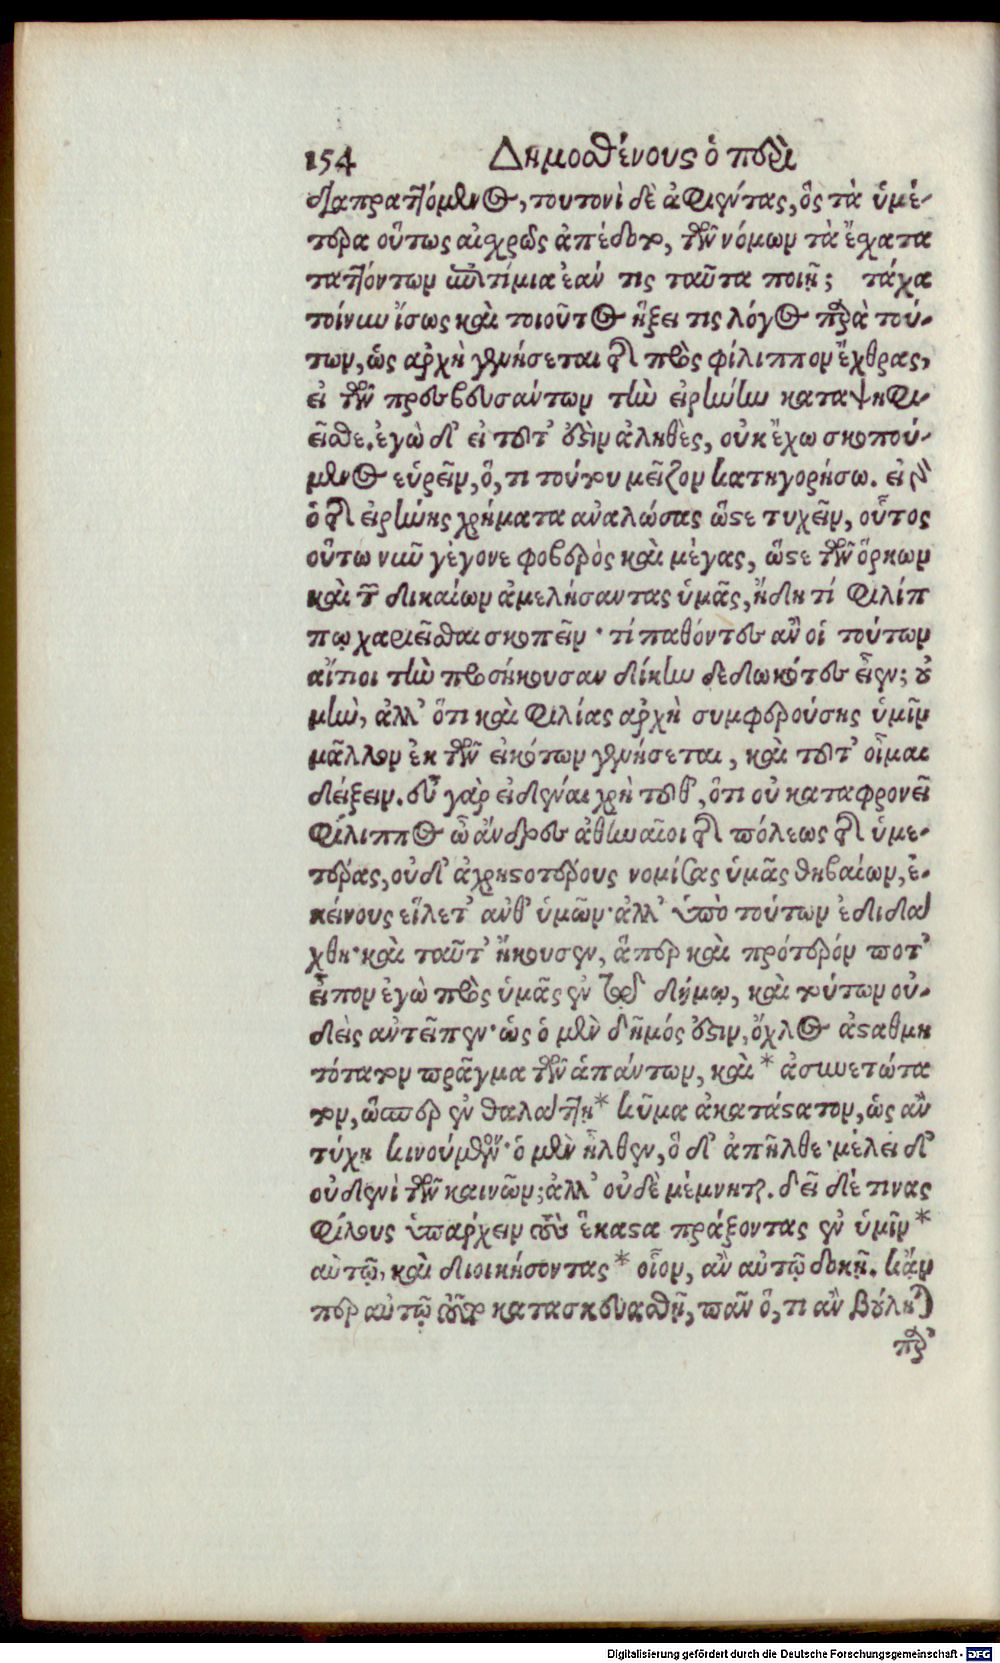 154 Δημοσθένους ὁ περὶ
διαπραττόμενος, τουτονὶ δὲ ἀφιέντας, ὃς τὰ ὑμέ-
τερα οὕτως αἰσχρῶς ἀπέδοτο, τῶν νόμων τὰ ἔσχατα
ταττόντων ἐπιτίμια ἐάν τις ταῦτα ποιῇ; τάχα
τοίνυν ἴσως καὶ τοιοῦτος ἥξει τις λόγος παρὰ τού-
των, ὡς ἀρχὴ γενήσεται τῆς πρὸς φίλιππον ἔχθρας,
εἰ τῶν πρεσβευσάντων τὴν εἰρήνην καταψηφι-
εῖσθε. ἐγὼ δ' εἰ τοῦτ' ἐστὶν ἀληθὲς, οὐκ ἔχω σκοπού-
μενος εὑρεῖν, ὅ, τι τούτου μεῖζον κατηγορήσω. εἰ γὰρ
ὁ τῆς εἰρήνης χρήματα ἀναλώσας ὥστε τυχεῖν, οὗτος
οὕτω νῦν γέγονε φοβερὸς καὶ μέγας, ὥστε τῶν ὅρκων
καὶ τῶν δικαίων ἀμελήσαντας ὑμᾶς, ἤδη τί φιλίπ
πῳ χαριεῖσθαι σκοπεῖν· τί παθόντες ἂν οἱ τούτων
αἴτιοι τὴν προσήκουσαν δίκην δεδωκότες εἶεν; οὐ
μὴν, ἀλλ' ὅτι καὶ φιλίας ἀρχὴ συμφερούσης ὑμῖν
μᾶλλον ἐκ τῶν εἰκότων γενήσεται, καὶ τοῦτ' οἶμαι
δείξειν. εὖ γὰρ εἰδέναι χρὴ τοῦθ', ὅτι οὐ καταφρονεῖ
φίλιππος ὦ ἄνδρες ἀθηναῖοι τῆς πόλεως τῆς ὑμε-
τέρας, οὐδ' ἀχρηστοτέρους νομίσας ὑμᾶς θηβαίων, ἐ-
κείνους εἵλετ' ἀνθ' ὑμῶν· ἀλλ' ὑπὸ τούτων ἐδιδά
χθη· καὶ ταῦτ' ἤκουσεν, ἅπερ καὶ πρότερόν ποτ'
εἶπον ἐγὼ πρὸς ὑμᾶς ἐν τῷ δήμῳ, καὶ τούτων οὐ-
δεὶς ἀντεῖπεν· ὡς ὁ μὲν δῆμός ἐστιν, ὄχλος ἀσταθμη
τότατον πρᾶγμα τῶν ἁπάντων, καὶ * ἀσυνετώτα
τον, ὥσπερ ἐν θαλάττῃ * κῦμα ἀκατάστατον, ὡς ἂν
τύχῃ κινούμενον· ὁ μὲν ἦλθεν, ὃ δ' ἀπῆλθε· μέλει δ'
οὐδενὶ τῶν κοινῶν; ἀλλ' οὐδὲ μέμνηται. δεῖ δέ τινας
φίλους ὑπάρχειν τοὺς ἕκαστα πράξοντας ἐν ὑμῖν *
αὐτῷ, καὶ διοικήσοντας * οἷον, ἂν αὐτῷ δοκῇ. κἄν
περ αὐτῷ τοῦτο κατασκευασθῇ, πᾶν ὅ, τι ἂν βούληται
παρ'
Digitalisierung gefördert durch die Deutsche Forschungsgemeinschaft - DFG